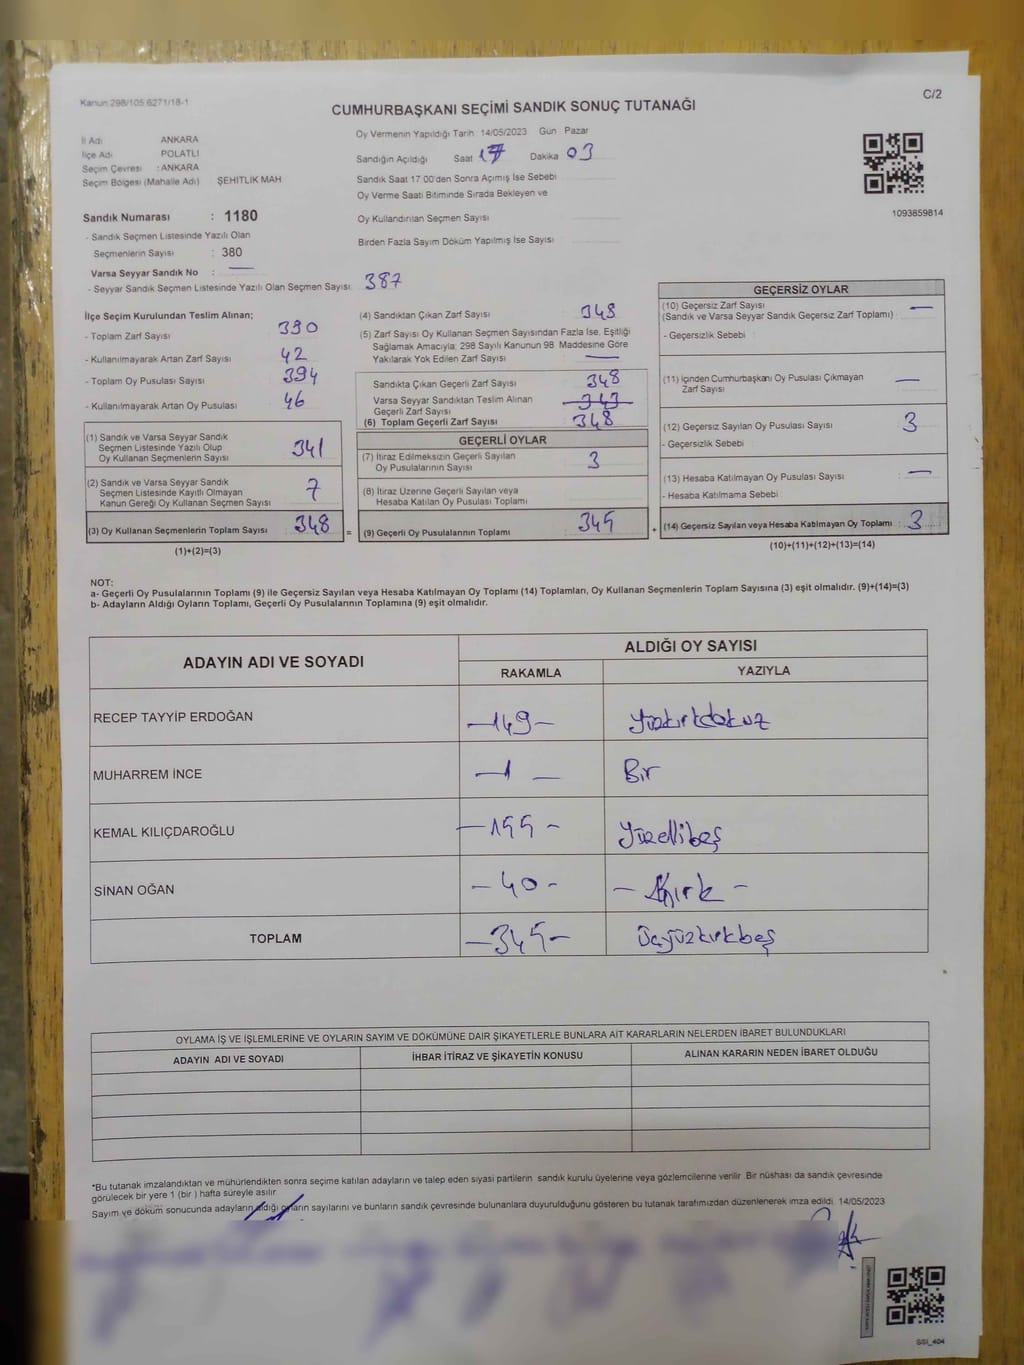 Kanun 298/105 6271/18-1
C/2
CUMHURBAŞKANI SEÇİMİ SANDIK SONUÇ TUTANAĞI
İl Adı ANKARA
İlçe Adı POLATLI
Seçim Çevresi : ANKARA
Seçim Bölgesi (Mahalle Adı) ŞEHİTLİK MAH
Sandık Numarası : 1180
- Sandık Seçmen Listesinde Yazılı Olan
Seçmenlerin Sayısı : 380
Varsa Seyyar Sandık No : —
- Seyyar Sandık Seçmen Listesinde Yazılı Olan Seçmen Sayısı: 387
Oy Vermenin Yapıldığı Tarih: 14/05/2023 Gün Pazar
Sandığın Açıldığı Saat 17 Dakika 03
Sandık Saat 17:00'den Sonra Açımış İse Sebebi
Oy Verme Saati Bitiminde Sırada Bekleyen ve
Oy Kullandırılan Seçmen Sayısı
Birden Fazla Sayım Döküm Yapılmış İse Sayısı
1093859814
İlçe Seçim Kurulundan Teslim Alınan;
- Toplam Zarf Sayısı 390
- Kullanılmayarak Artan Zarf Sayısı 42
- Toplam Oy Pusulası Sayısı 394
- Kullanılmayarak Artan Oy Pusulası 46
(1) Sandık ve Varsa Seyyar Sandık
Seçmen Listesinde Yazılı Olup
Oy Kullanan Seçmenlerin Sayısı 341
(2) Sandık ve Varsa Seyyar Sandık
Seçmen Listesinde Kayıtlı Olmayan
Kanun Gereği Oy Kullanan Seçmen Sayısı 7
(3) Oy Kullanan Seçmenlerin Toplam Sayısı 348 =
(1)+(2)=(3)
(4) Sandıktan Çıkan Zarf Sayısı 348
(5) Zarf Sayısı Oy Kullanan Seçmen Sayısından Fazla İse, Eşitliği
Sağlamak Amacıyla; 298 Sayılı Kanunun 98. Maddesine Göre
Yakılarak Yok Edilen Zarf Sayısı —
Sandıkta Çıkan Geçerli Zarf Sayısı 348
Varsa Seyyar Sandıktan Teslim Alınan
Geçerli Zarf Sayısı 343
(6) Toplam Geçerli Zarf Sayısı 348
GEÇERLİ OYLAR
(7) İtiraz Edilmeksizin Geçerli Sayılan
Oy Pusulalarının Sayısı 3
(8) İtiraz Üzerine Geçerli Sayılan veya
Hesaba Katılan Oy Pusulası Toplamı
(9) Geçerli Oy Pusulalarının Toplamı 345 +
GEÇERSİZ OYLAR
(10) Geçersiz Zarf Sayısı
(Sandık ve Varsa Seyyar Sandık Geçersiz Zarf Toplamı) : —
- Geçersizlik Sebebi :
(11) İçinden Cumhurbaşkanı Oy Pusulası Çıkmayan
Zarf Sayısı —
(12) Geçersiz Sayılan Oy Pusulası Sayısı 3
- Geçersizlik Sebebi
(13) Hesaba Katılmayan Oy Pusulası Sayısı —
- Hesaba Katılmama Sebebi
(14) Geçersiz Sayılan veya Hesaba Katılmayan Oy Toplamı : 3
(10)+(11)+(12)+(13)=(14)
NOT:
a- Geçerli Oy Pusulalarının Toplamı (9) ile Geçersiz Sayılan veya Hesaba Katılmayan Oy Toplamı (14) Toplamları, Oy Kullanan Seçmenlerin Toplam Sayısına (3) eşit olmalıdır. (9)+(14)=(3)
b- Adayların Aldığı Oyların Toplamı, Geçerli Oy Pusulalarının Toplamına (9) eşit olmalıdır.
ADAYIN ADI VE SOYADI ALDIĞI OY SAYISI
RAKAMLA YAZIYLA
RECEP TAYYİP ERDOĞAN —149— Yüzkırkdokuz
MUHARREM İNCE —1— Bir
KEMAL KILIÇDAROĞLU —155— Yüzellibeş
SİNAN OĞAN —40— —Kırk—
TOPLAM —345— Üçyüzkırkbeş
OYLAMA İŞ VE İŞLEMLERİNE VE OYLARIN SAYIM VE DÖKÜMÜNE DAİR ŞİKAYETLERLE BUNLARA AİT KARARLARIN NELERDEN İBARET BULUNDUKLARI
ADAYIN ADI VE SOYADI İHBAR İTİRAZ VE ŞİKAYETİN KONUSU ALINAN KARARIN NEDEN İBARET OLDUĞU
*Bu tutanak imzalandıktan ve mühürlendikten sonra seçime katılan adayların ve talep eden siyasi partilerin sandık kurulu üyelerine veya gözlemcilerine verilir. Bir nüshası da sandık çevresinde
görülecek bir yere 1 (bir) hafta süreyle asılır.
Sayım ve döküm sonucunda adayların aldığı oyların sayılarını ve bunların sandık çevresinde bulunanlara duyurulduğunu gösteren bu tutanak tarafımızdan düzenlenerek imza edildi. 14/05/2023